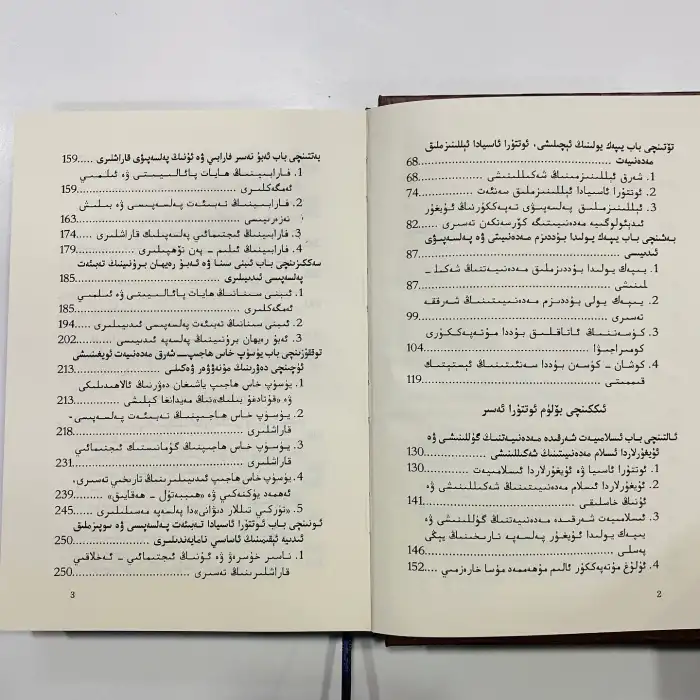 تۆتىنچى باب يىپەك يولىنىڭ ئېچىلىشى، ئوتتۇرا ئاسىيادا ئېللىنىزملىق
مەدەنىيەت ........ 68
1. شەرق ئېللىنىزمىنىڭ شەكىللىنىشى ........ 68
2. ئوتتۇرا ئاسىيادا ئېللىنىزملىق سەنئەت ........ 74
3. ئېللىنىزملىق پەلسەپىۋى تەپەككۇرنىڭ ئۇيغۇر
ئىدېئولوگىيە مەدەنىيىتىگە كۆرسەتكەن تەسىرى ........ 82
بەشىنچى باب يىپەك يولىدا بۇددىزم مەدەنىيىتى ۋە پەلسەپىۋى
ئىدىيىسى ........ 87
1. يىپەك يولىدا بۇددىزملىق مەدەنىيەتنىڭ شەكىل –
لىنىشى ........ 87
2. يىپەك يولى بۇددىزم مەدەنىيىتىنىڭ شەرققە
تەسىرى ........ 99
3. كۈسەننىڭ ئاتاقلىق بۇددا مۇتەپەككۇرى
كومىراجىۋا ........ 104
4. كوشان – كۈسەن بۇددا سەنئىتىنىڭ ئېستېتىك
قىممىتى ........ 119
ئىككىنچى بۆلۈم ئوتتۇرا ئەسىر
ئالتىنچى باب ئىسلامىيەت شەرقىدە مەدەنىيەتنىڭ گۈللىنىشى ۋە
ئۇيغۇرلاردا ئىسلام مەدەنىيىتىنىڭ شەكىللىنىشى ........ 130
1. ئوتتۇرا ئاسىيا ۋە ئۇيغۇرلاردا ئىسلامىيەت ........ 130
2. ئۇيغۇرلاردا ئىسلام مەدەنىيىتىنىڭ شەكىللىنىشى ۋە
ئۇنىڭ خاسلىقى ........ 141
3. ئىسلامىيەت شەرقىدە مەدەنىيەتنىڭ گۈللىنىشى ۋە
يىپەك يولىدا ئۇيغۇر پەلسەپە تارىخىنىڭ يېڭى
پەسلى ........ 146
4. ئۇلۇغ مۇتەپەككۇر ئالىم مۇھەممەد مۇسا خارەزمىي .... 152
2
يەتتىنچى باب ئەبۇ نەسر فارابى ۋە ئۇنىڭ پەلسەپىۋى قاراشلىرى ..... 159
1. فارابىينىڭ ھايات پائالىيىتى ۋە ئىلمىي
ئەمگەكلىرى ........ 159
2. فارابىينىڭ تەبىئەت پەلسەپىسى ۋە بىلىش
نەزەرىيىسى ........ 163
3. فارابىينىڭ ئىجتىمائىي پەلسەپىلىك قاراشلىرى ..... 174
4. فارابىينىڭ ئىلىم – پەن تۆھپىلىرى ........ 179
سەككىزىنچى باب ئىبنى سىنا ۋە ئەبۇ رەيھان بىرۇنىينىڭ تەبىئەت
پەلسەپىسى ئىدىيىلىرى ........ 185
1. ئىبنى سىنانىڭ ھايات پائالىيىتى ۋە ئىلمىي
ئەمگەكلىرى ........ 185
2. ئىبنى سىنانىڭ تەبىئەت پەلسەپىسى ئىدىيىلىرى ..... 194
3. ئەبۇ رەيھان بىرۇنىينىڭ پەلسەپە ئىدىيىلىرى ........ 202
توققۇزىنچى باب يۈسۈپ خاس ھاجىپ— شەرق مەدەنىيەت ئويغىنىشى
ئۈچىنچى دەۋرىنىڭ مۇنەۋۋەر ۋەكىلى ........ 213
1. يۈسۈپ خاس ھاجىپ ياشىغان دەۋرنىڭ ئالاھىدىلىكى
ۋە «قۇتادغۇ بىلىك»نىڭ مەيدانغا كېلىشى ........ 213
2. يۈسۈپ خاس ھاجىپنىڭ تەبىئەت پەلسەپىسى-
قاراشلىرى ........ 218
3. يۈسۈپ خاس ھاجىپنىڭ گۇمانىستىك ئىجتىمائىي
قاراشلىرى ........ 231
4. يۈسۈپ خاس ھاجىپ ئىدىيىلىرىنىڭ تارىخىي تەسىرى،
ئەھمەد يۈكنەكىي ۋە «ھىبەتۇل – ھەقايىق» ........ 239
5. «تۈركىي تىللار دىۋانى»دا پەلسەپە مەسىلىلىرى ..... 245
ئونىنچى باب ئوتتۇرا ئاسىيادا تەبىئەت پەلسەپىسى ۋە سوپىزملىق
ئىدىيە ئېقىمىنىڭ ئاساسىي نامايەندىلىرى ........ 250
1. ناسىر خۇسرەۋ ۋە ئۇنىڭ ئىجتىمائىي – ئەخلاقىي
قاراشلىرىنىڭ تەسىرى ........ 250
3